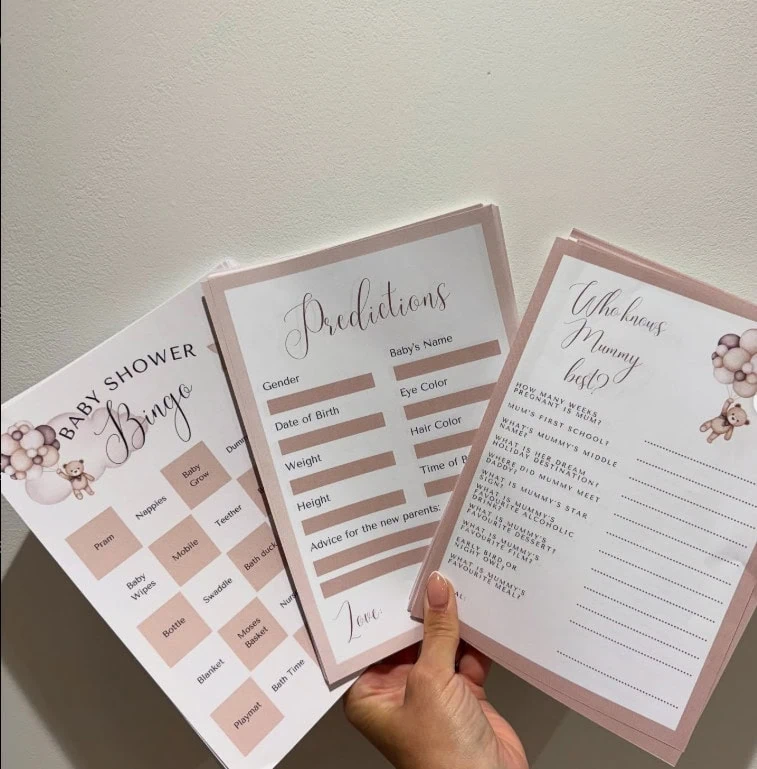 BABY SHOWER
Bingo
Baby
Grow
Nappies
Pram
Teether
Mobile
Baby
Wipes
Bath duck
Swaddle
Bottle
Moses
Basket
Blanket
Bath Time
Playmat
Predictions
Gender
Baby's Name
Date of Birth
Eye Color
Weight
Hair Color
Height
Time of B
Advice for the new parents:
Love:
Who knows
Mummy
best?
HOW MANY WEEKS
PREGNANT IS MUM?
MUM'S FIRST SCHOOL?
WHAT'S MUMMY'S MIDDLE
NAME?
WHAT IS HER DREAM
HOLIDAY DESTINATION?
WHERE DID MUMMY MEET
DADDY?
WHAT IS MUMMY'S STAR
SIGN?
WHAT IS MUMMY'S
FAVOURITE ALCOHOLIC
DRINK?
WHAT IS MUMMY'S
FAVOURITE DESSERT?
WHAT IS MUMMY'S
FAVOURITE FILM?
EARLY BIRD OR
NIGHT OWL?
WHAT IS MUMMY'S
FAVOURITE MEAL?